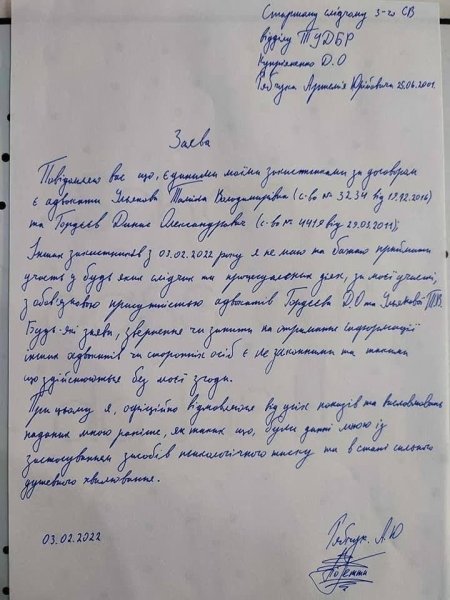 Старшому слідчому 3-го СВ
відділу ТУДБР
Купріяненко Д.О
Рябчука Артемія Юрійовича 25.06.2001.
Заява
Повідомляю вас що, єдиними моїми захисниками за договором
є адвокати Ульянова Таміла Володимирівна (с-во № 3234 від 19.02.2016)
та Гордєєв Данис Олександрович (с-во № 4419 від 29.03.2011);
Інших захисників з 03.02.2022 року я не маю та бажаю приймати
участь у будь яких слідчих та процесуальних діях, за моєї участі,
з обов'язковою присутністю адвокатів Гордєєва Д.О та Ульянової Т.В.
Будь-які заяви, звернення чи запити на отримання інформації
інших адвокатів чи сторонніх осіб є не законними та такими
що здійснюються без моєї згоди.
При цьому я, офіційно відмовляюся від усіх показів та висловлювань
наданих мною раніше, як таких що, були данні мною із
застосуванням засобів психологічного тиску та в стані сильного
душевного хвилювання.
03.02.2022
Рябчук А.Ю